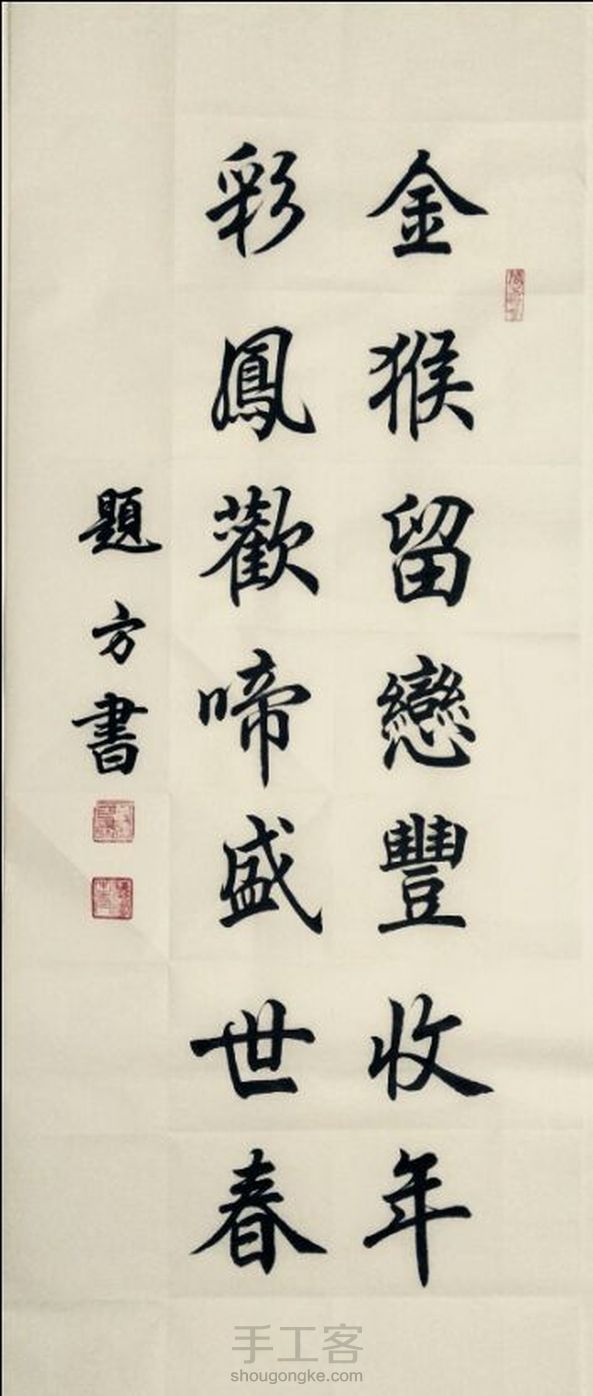 金猴留戀豐收年
彩鳳歡啼盛世春
題方書
手工客
shougongke.com